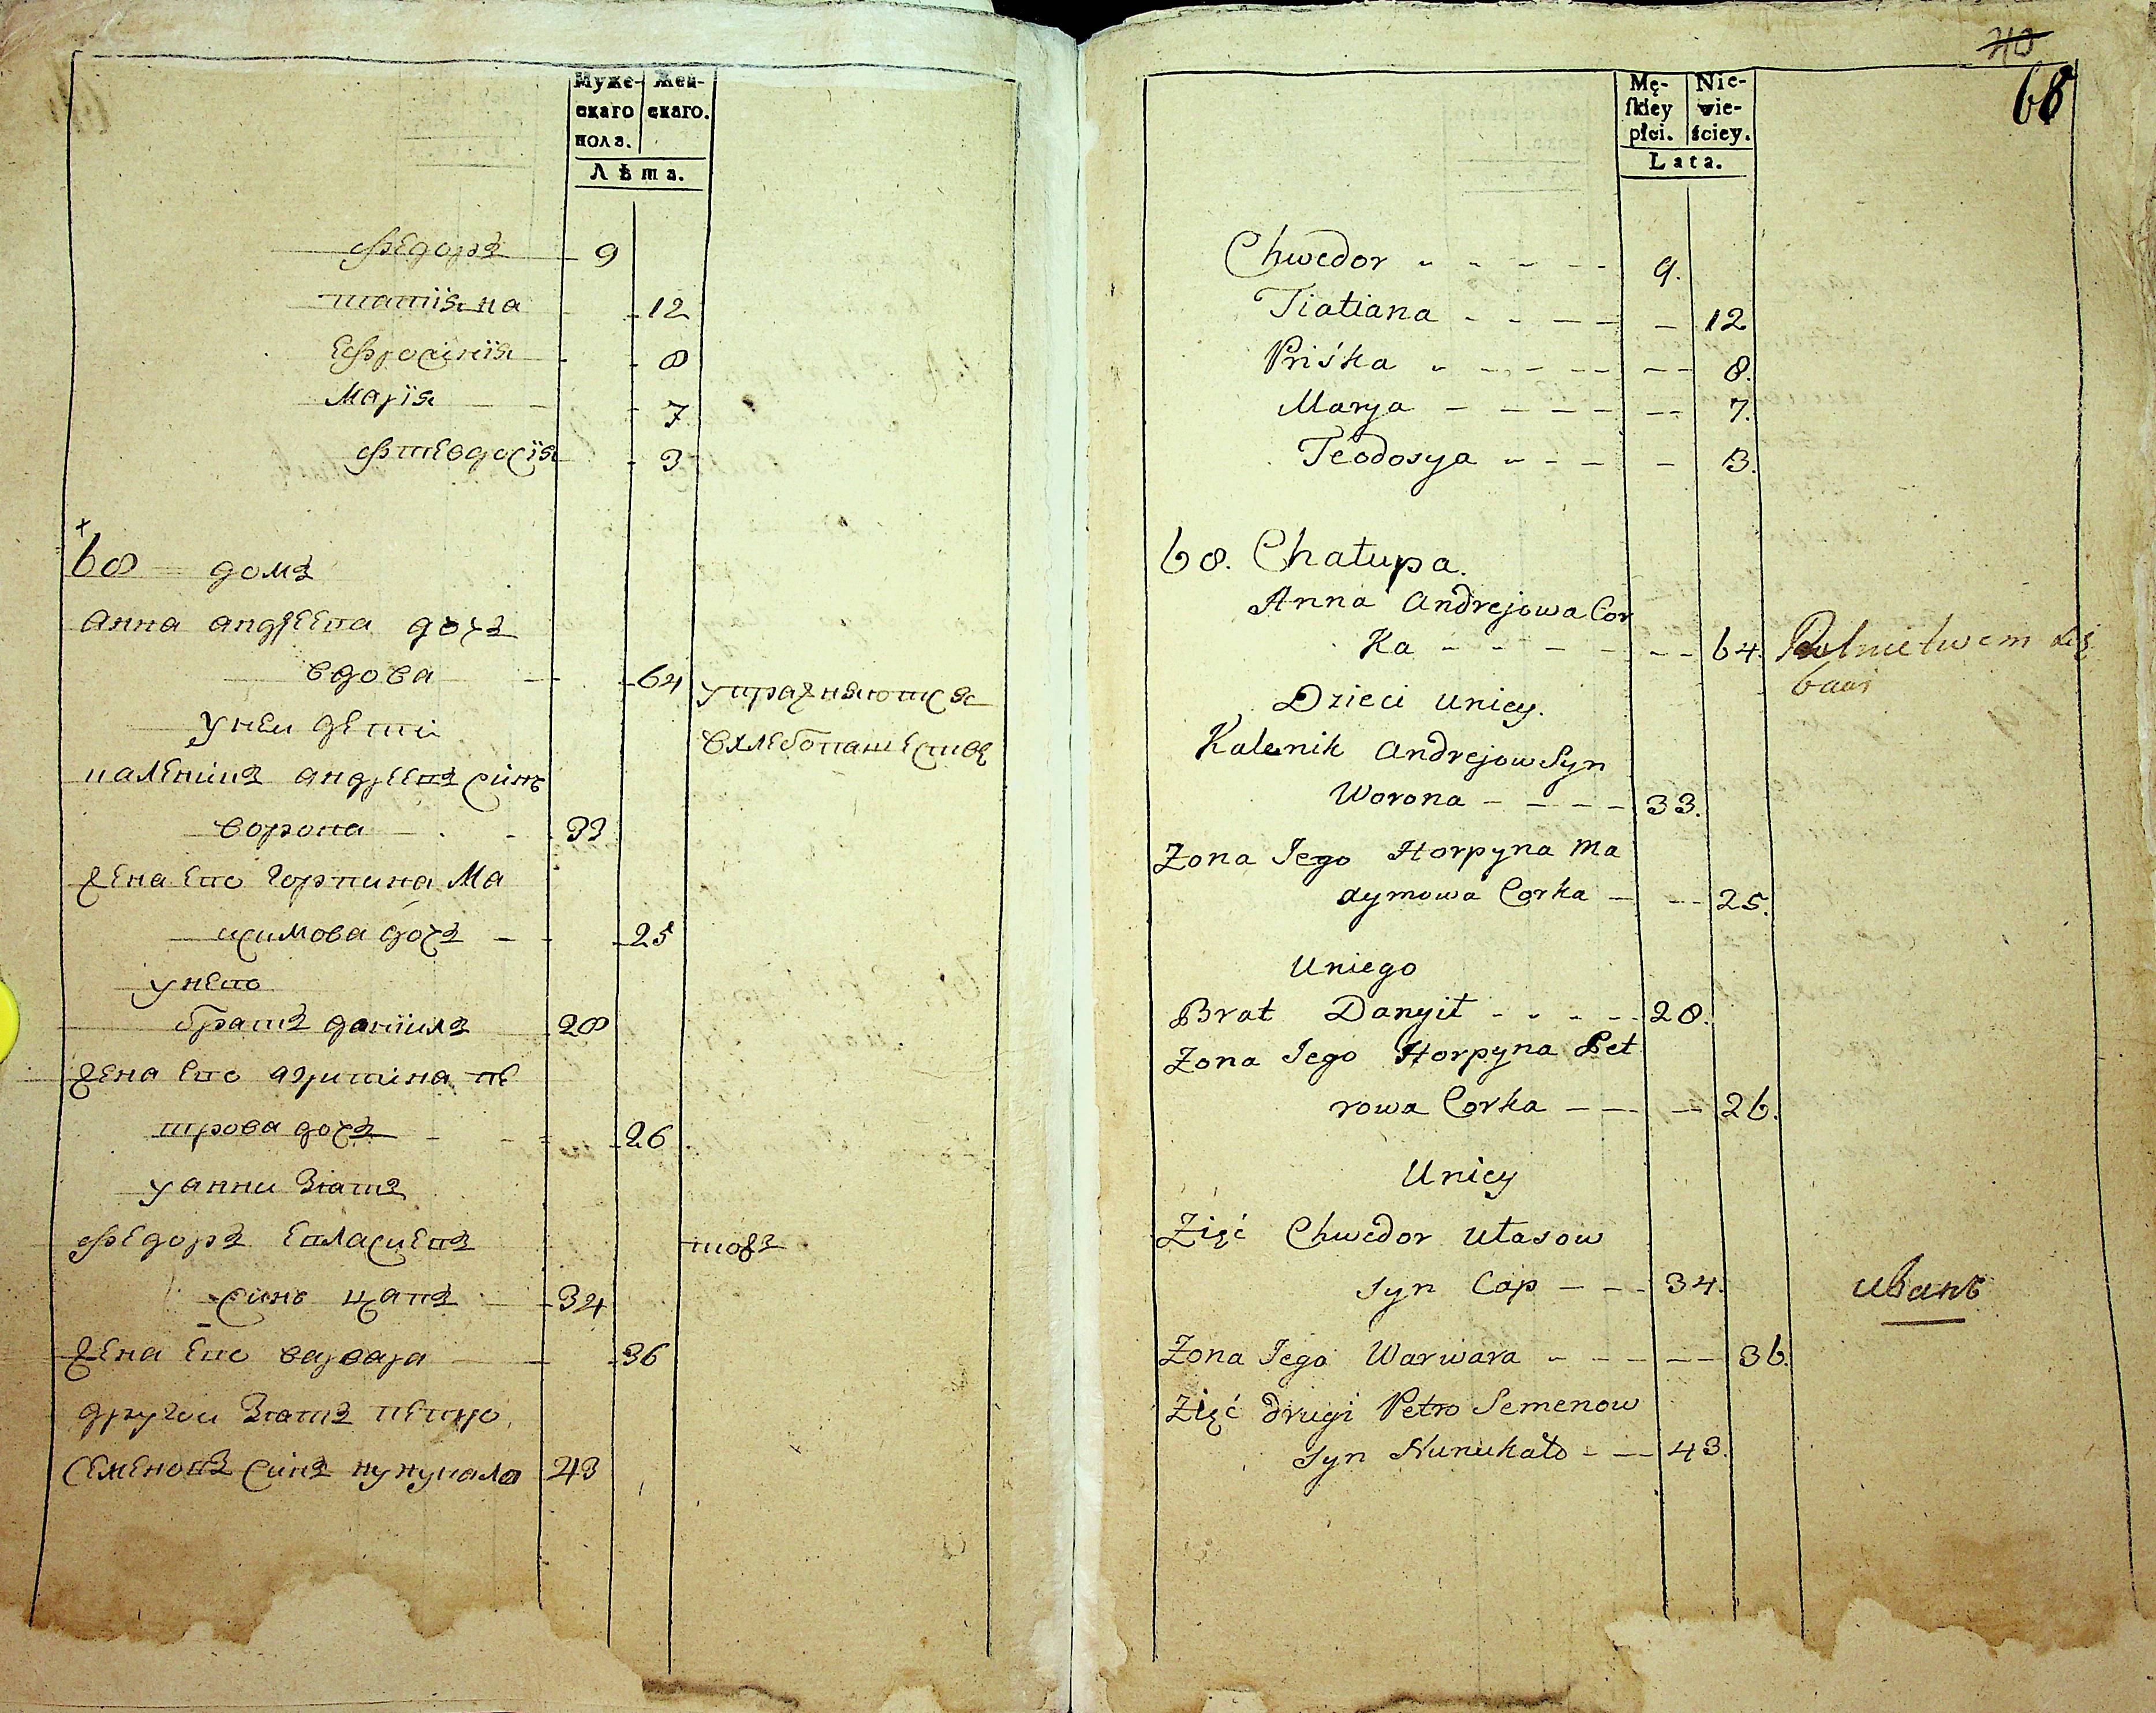 Муже- Жен-
скаго скаго.
пола.
Лѣта.
федоръ 9
татіяна 12
ефросинія 8
Марія 7
фтеодосія 3
68 домъ
Анна андреева дочъ
вдова 64 упражняются
У неи дети в хлебопашествѣ
каленикъ андреевъ синъ
ворона 33
жена его горпина Ма
ксимова дочъ 25
у него
братъ даніилъ 28
жена его агрипина пе
трова дочъ 26
у анни зятъ
федоръ евласиевъ тожъ
синъ цапъ 34
жена его варвара 36
другои зятъ петро
семеновъ синъ нунукало 43
40
68
Mę- Nie-
skiey wie-
płci. ściey.
Lata.
Chwedor 9.
Tiatiana 12
Priśka 8.
Marya 7.
Teodosya 3.
68. Chałupa.
Anna Andrejowa Cor
ka 64. Rolnictwem
Dzieci u niey.
Kalenik Andrejow Syn
Worona 33.
Zona Jego Horpyna Ma
xymowa Corka 25.
U niego
Brat Danyił 28.
Zona Jego Horpyna Pet
rowa Corka 26.
U niey
Zięć Chwedor Ułasow
Syn Cap 34. иванъ
Zona Jego Warwara 36.
Zięć drugi Petro Semenow
Syn Nunukało 43.